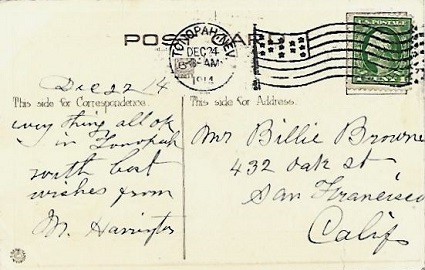 POST CARD
TONOPAH, NEV.
DEC 24
-AM
1914
U.S. POSTAGE
Dec 22 / 14
This side for Correspondence.
This side for Address.
every thing all ok
in Tonopah
with best
wishes from
M. Harrington
Mr Billie Browne
432 Oak st
San Francisco
Calif